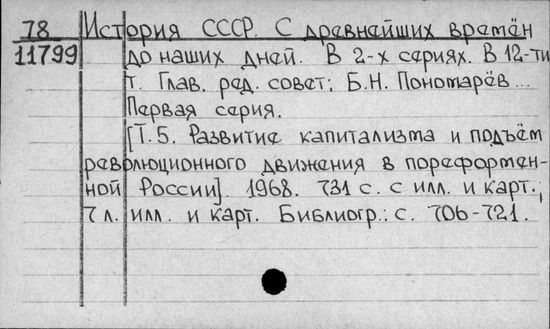 78 История СССР. С древнейших времён
11799 до наших дней. В 2-х сериях. В 12-ти
т. Глав. ред. совет: Б.Н. Пономарёв ...
Первая серия.
[Т.5. Развитие капитализма и подъём
революционного движения в пореформен-
ной России]. 1968. 731 с. с илл. и карт.;
7 л. илл. и карт. Библиогр.: с. 706-721.